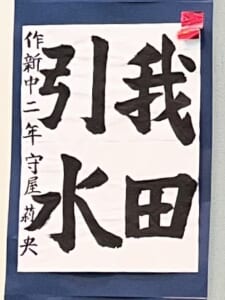 我田
引水
作新中二年 守屋莉央